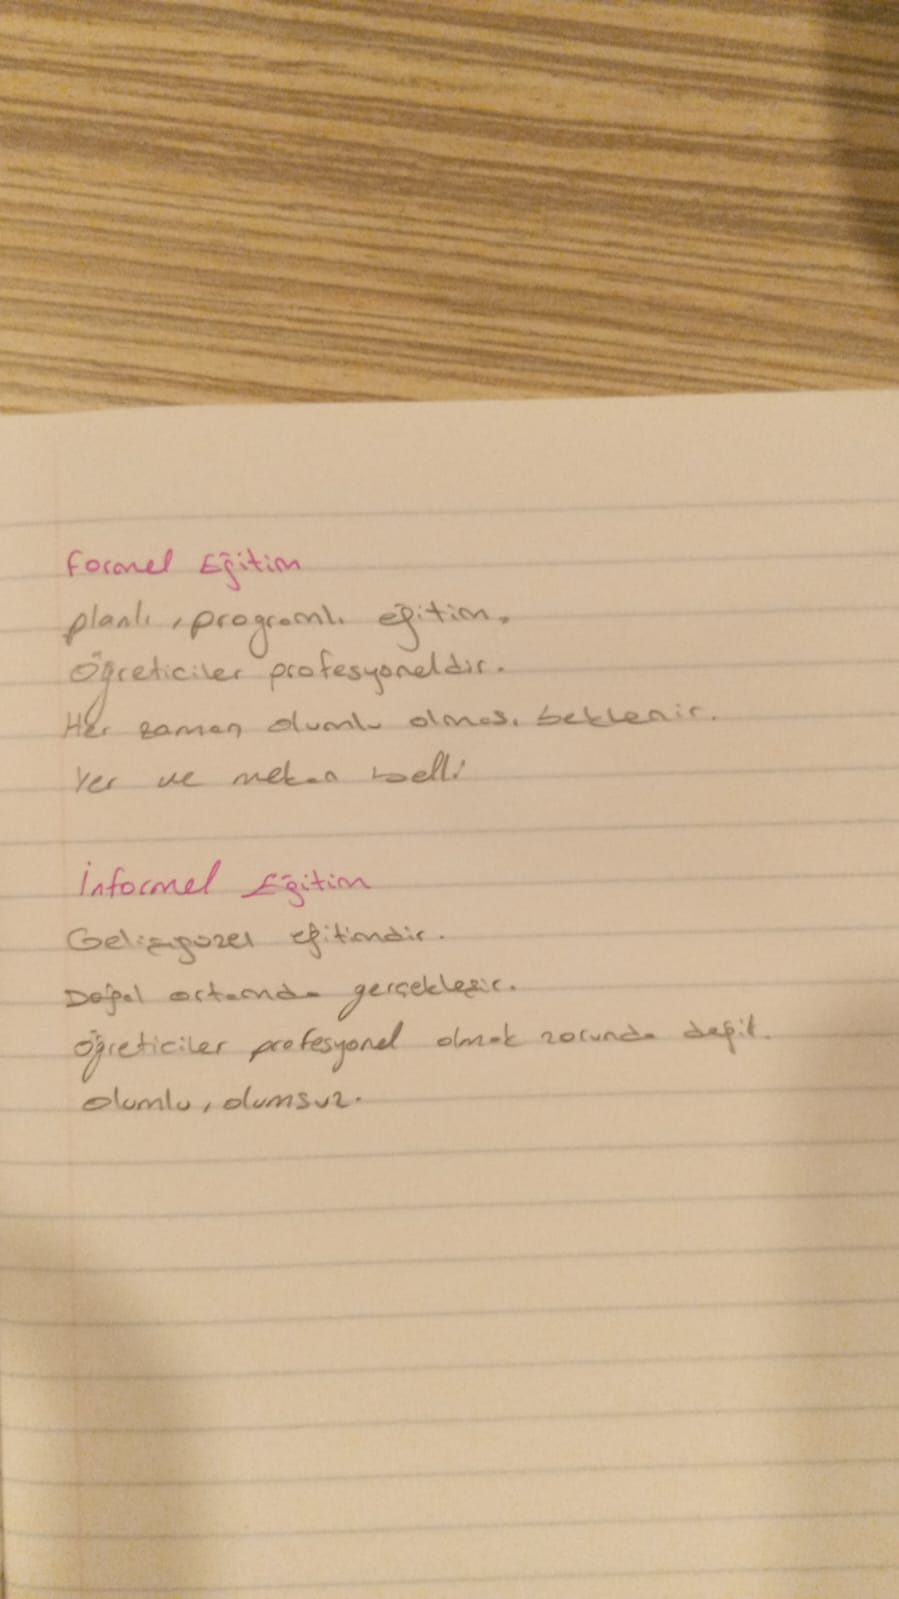 Formel Eğitim
planlı, programlı eğitim.
Öğreticiler profesyoneldir.
Her zaman olumlu olması beklenir.
Yer ve mekan belli
İnformel Eğitim
Gelişigüzel eğitimdir.
Doğal ortamda gerçekleşir.
Öğreticiler profesyonel olmak zorunda değil.
olumlu, olumsuz.